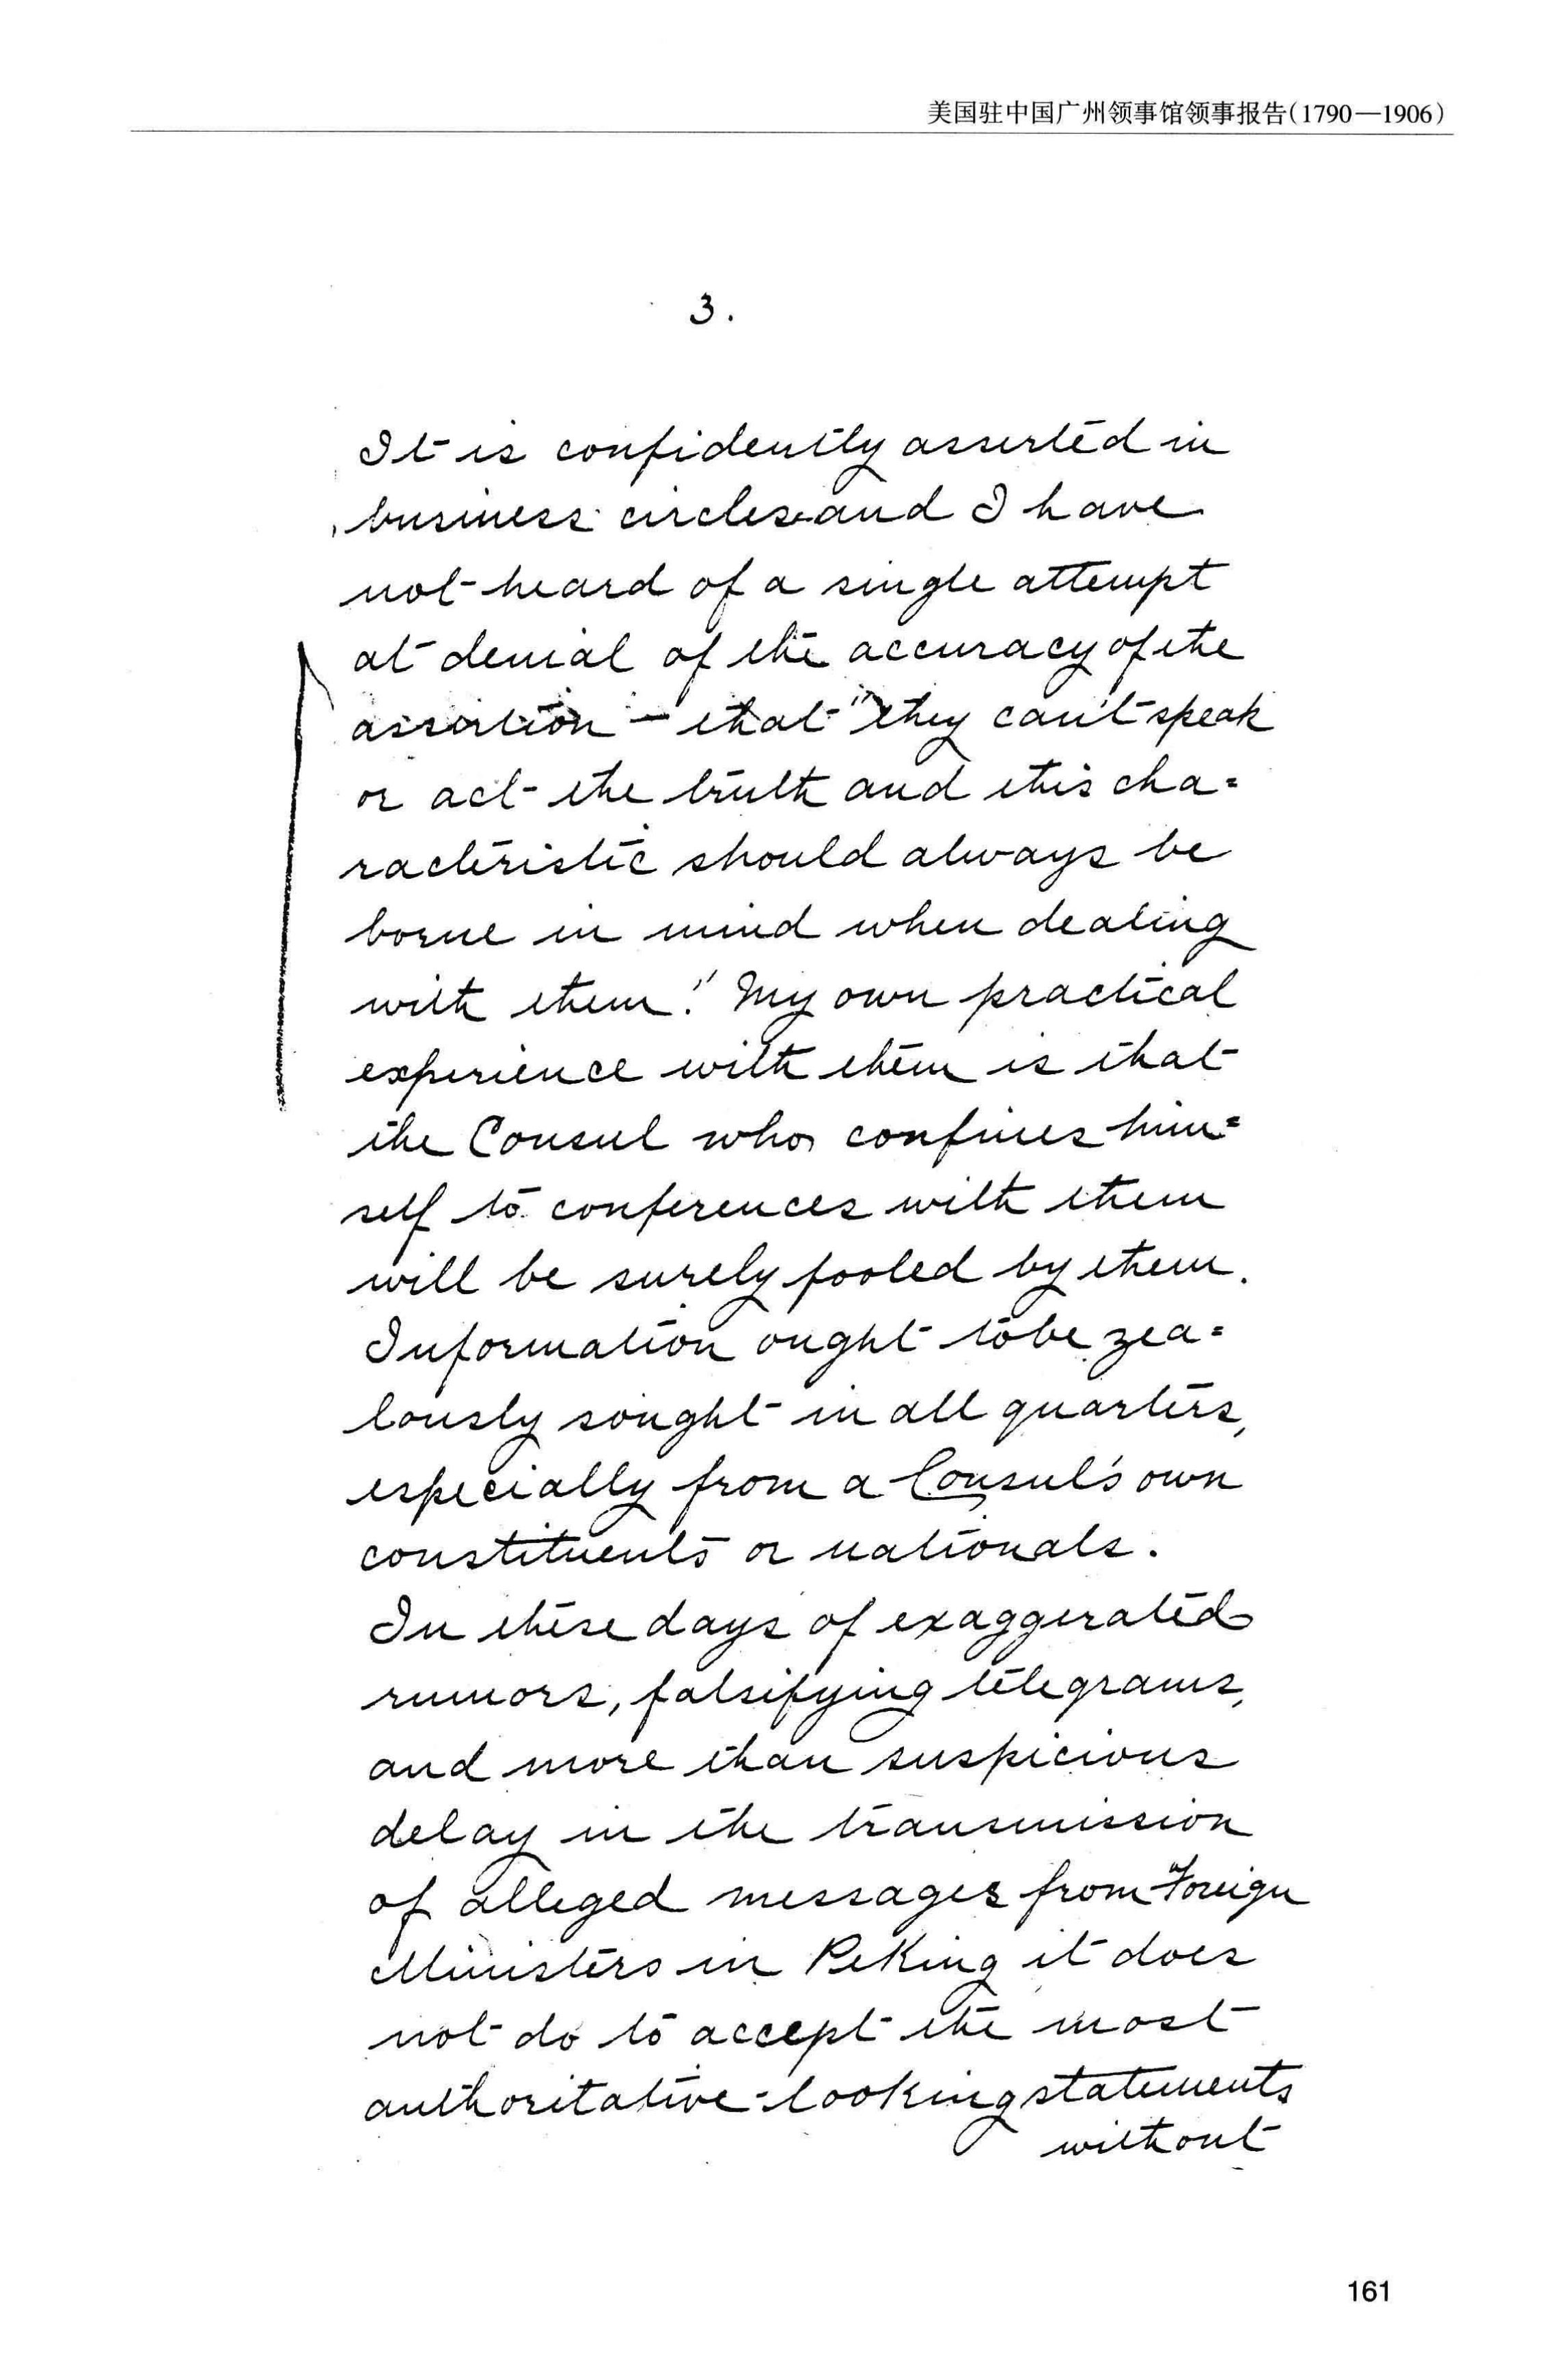 美国驻中国广州领事馆领事报告(1790—1906)
3.
It is confidently asserted in
business circles and I have
not heard of a single attempt
at denial of the accuracy of the
assertion – that "they can't speak
or act the truth and this cha=
racteristic should always be
borne in mind when dealing
with them." My own practical
experience with them is that
the Consul who confines him=
self to conferences with them
will be surely fooled by them.
Information ought to be zea=
lously sought in all quarters,
especially from a Consul's own
constituents or nationals.
In these days of exaggerated
rumors, falsifying telegrams,
and more than suspicious
delay in the transmission
of alleged messages from Foreign
Ministers in Peking it does
not do to accept the most
authoritative=looking statements
without
161